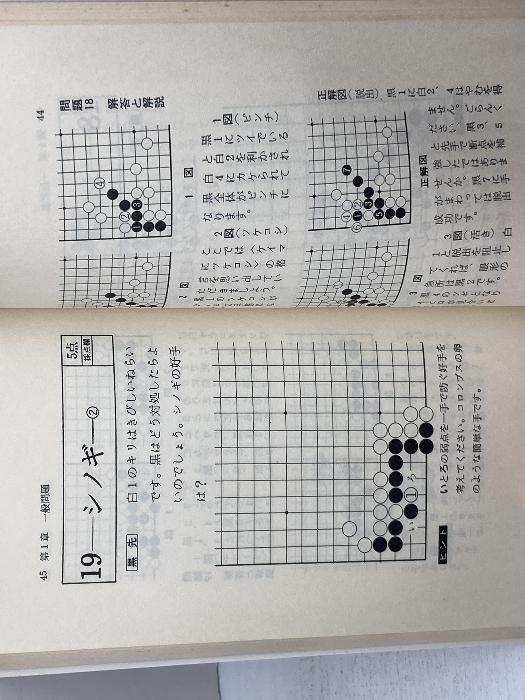 44
問題
18
解答と解説
1図(ピンチ)
黒1にツイでいる
と白2を利かされ
白4にカケられて
黒全体がピンチに
なります。
2図(ツケコシ)
ここでは〈ケイマ
にツケコシ〉の格
1図
2図
正解図(脱出) 黒1に白2、4はやむを得
ません。ごらんく
ださい、黒3、5
と先手で断点を補
強したではありま
せんか。黒7に手
がまわっては脱出
成功です。
3図(活き) 白
1と脱出を阻止し
てくれば、眼形の
急所は黒2です。
正解図
3図
45 第1章 一般問題
19—シノギ—②
5点
採点欄
黒先
白1のキリはきびしいねらい
です。黒はどう対処したらよ
いのでしょう。シノギの好手
は?
1
い
ろ
ヒント
いとろの弱点を一手で防ぐ好手を
考えてください。コロンブスの卵
のような簡単な手です。